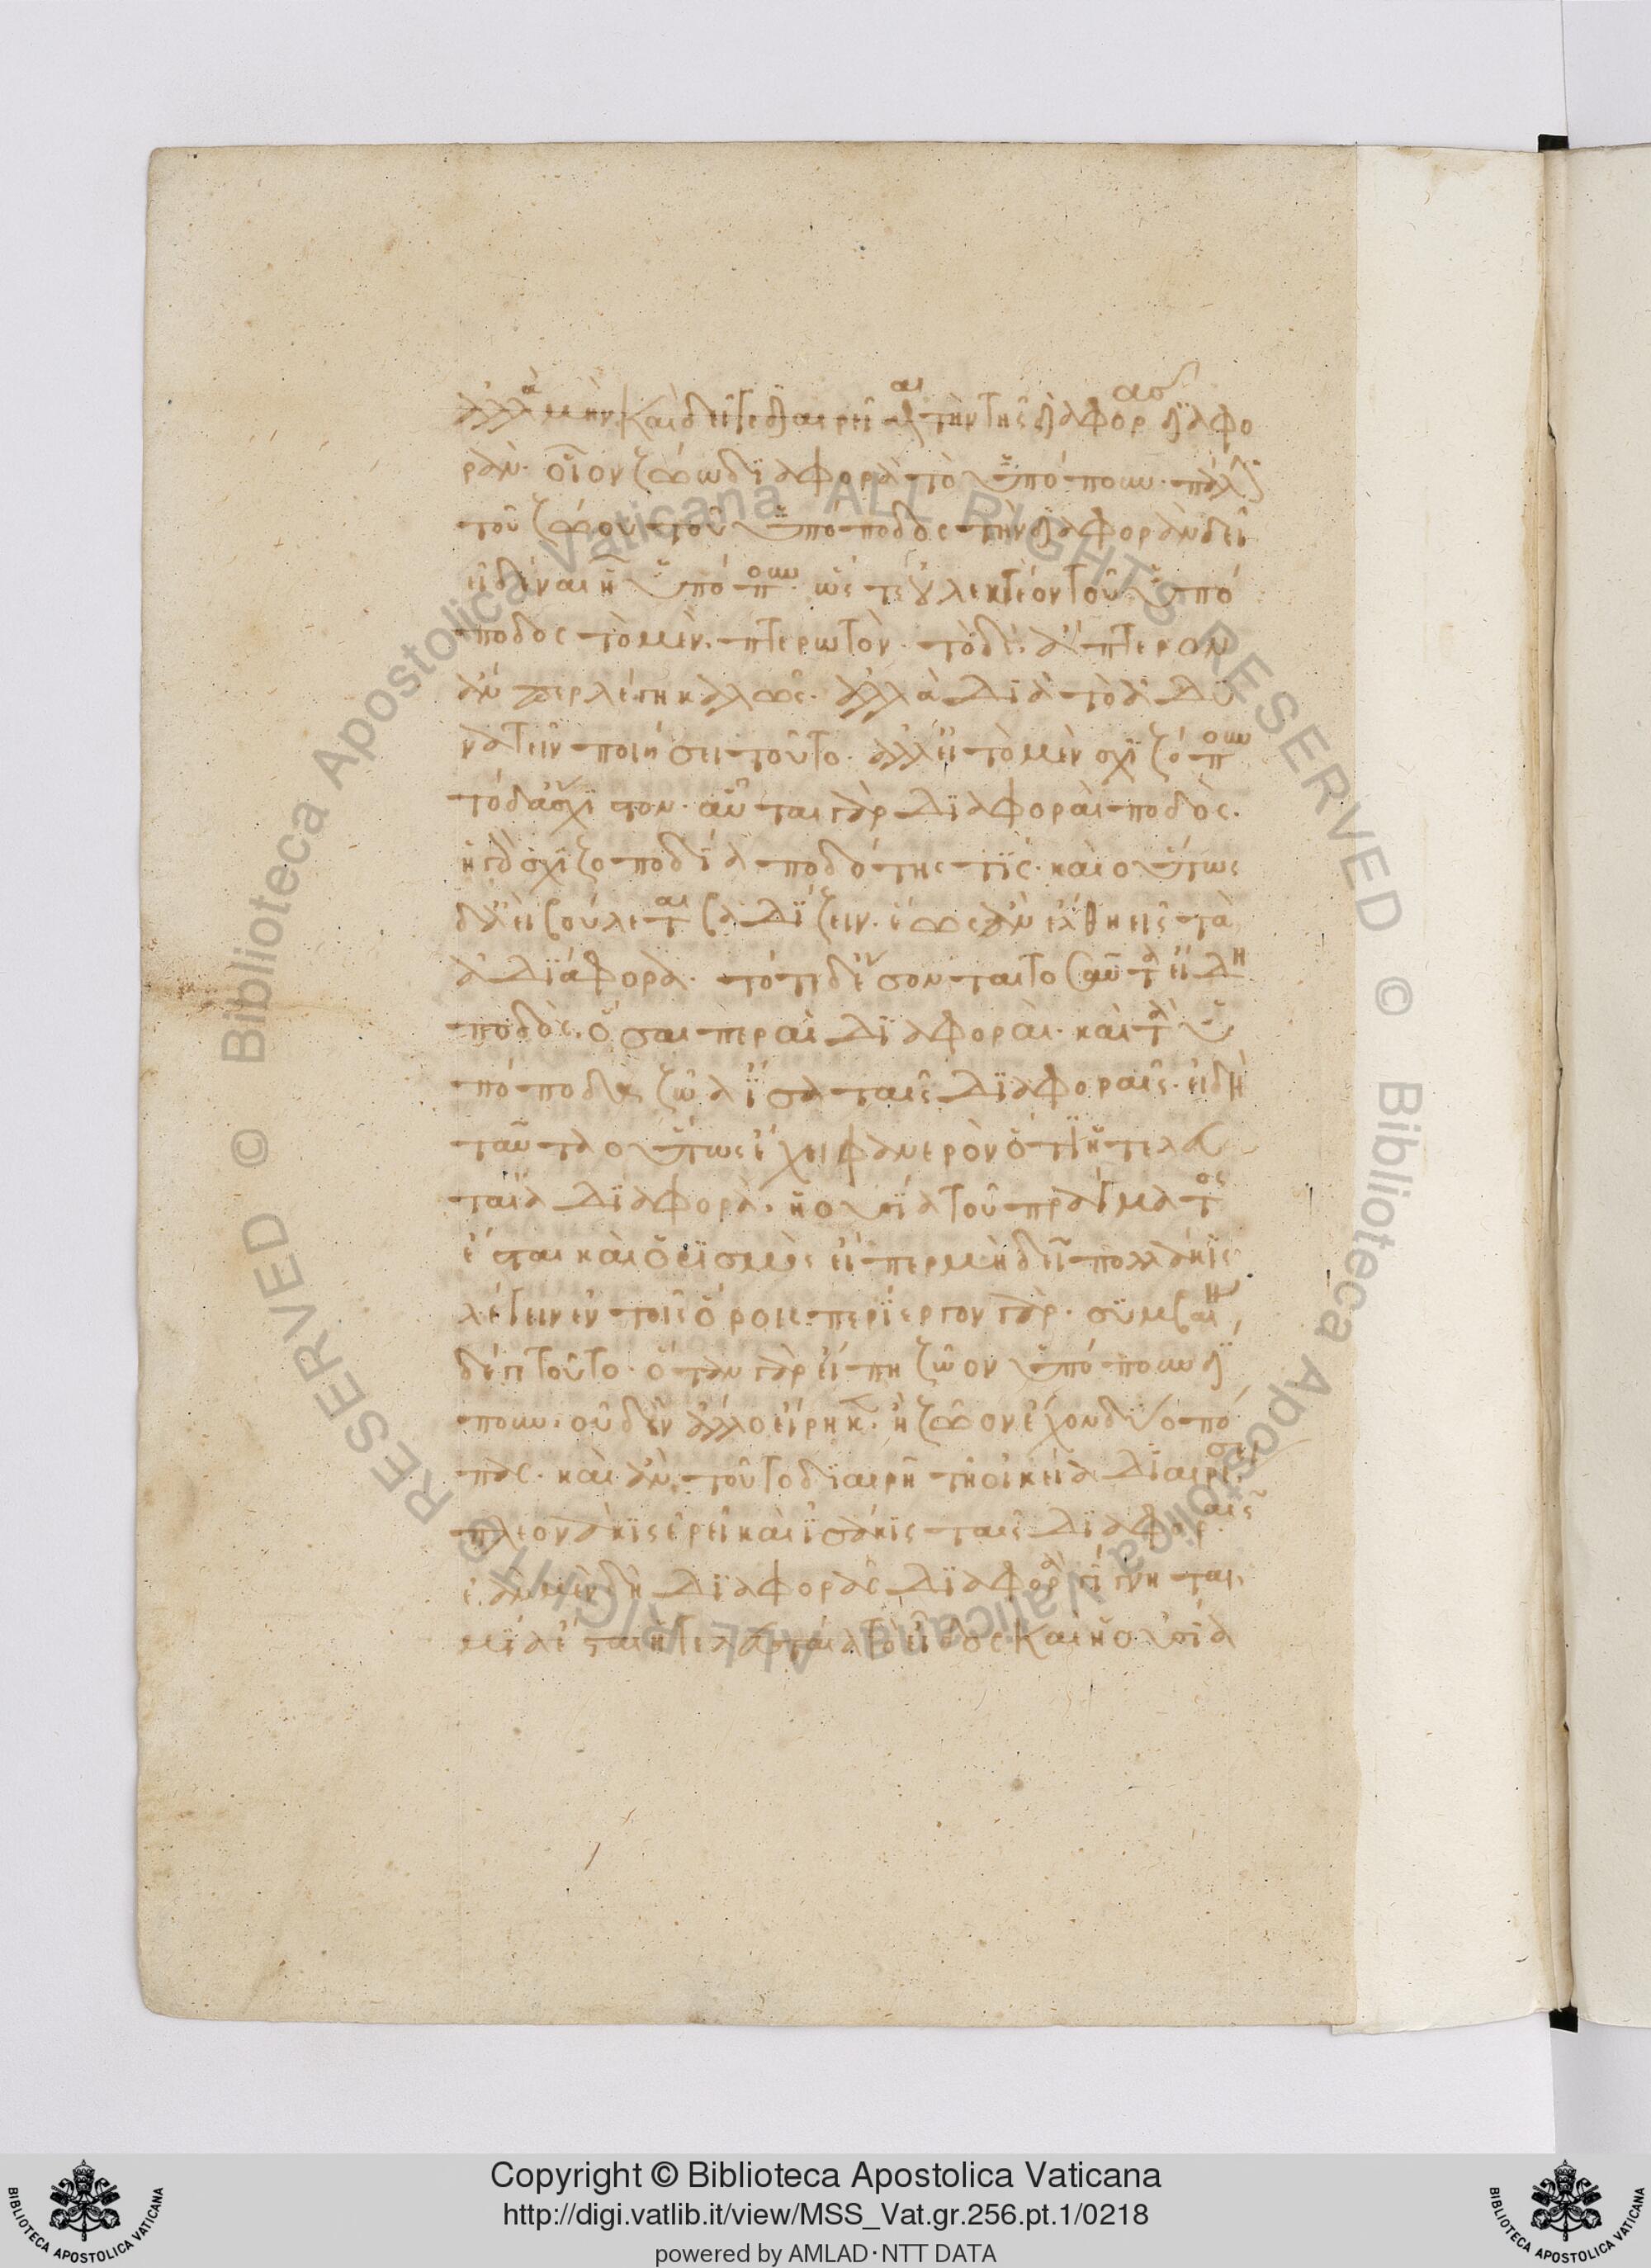 ἀλλὰ μὴν καὶ δεῖ γε διαιρεῖσθαι τὴν τῆς διαφορᾶς διαφο
ράν· οἷον ζώου διαφορὰ τὸ ὑπόπουν· πάλιν
τοῦ ζώου τοῦ ὑπόποδος τὴν διαφορὰν δεῖ
εἰδέναι ἢ ὑπόπουν· ὥστ' οὐ λεκτέον τοῦ ὑπό
ποδος τὸ μὲν πτερωτὸν· τὸ δὲ ἄπτερον
ἐάν περ λέγη καλῶς· ἀλλὰ διὰ τὸ ἀδυ
νατεῖν ποιήσει τοῦτο· ἀλλ' εἰ τὸ μὲν σχιζόπουν
τὸ δ' ἄσχιστον· αὗται γὰρ διαφοραὶ ποδός·
ἡ γὰρ σχιζοποδία ποδότης τίς· καὶ οὕτως
ἀεὶ βούλεται βαδίζειν· ἕως ἂν ἔλθη εἰς τὰ
ἀδιάφορα· τότε δ' ἔσονται τοσαῦτα εἴδη
ποδός· ὅσαι περ αἱ διαφοραί· καὶ τὰ ὑ
πόποδα ζῶα ἴσα ταῖς διαφοραῖς· εἰ δὴ
ταῦτα οὕτως ἔχει φανερὸν ὅτι ἡ τελευ
ταία διαφορὰ· ἡ οὐσία τοῦ πράγματος
ἔσται καὶ ὁ ὁρισμὸς εἴπερ μὴ δεῖ πολλάκις
λέγειν ἐν τοῖς ὅροις περίεργον γάρ· συμβαίνει
δέ γε τοῦτο· ὅταν γὰρ εἴπη ζῶον ὑπόπουν δί
πουν· οὐδὲν ἄλλο εἴρηκεν· ἢ ζῶον ἔχον δύο πό
δας· κἂν τοῦτο διαιρῆ τῆ οἰκεία διαιρέσει
πλεονάκις ἐρεῖ καὶ ἰσάκις ταῖς διαφοραῖς
ἐὰν μὲν δὴ διαφορᾶς διαφορὰ γίγνηται
μία ἔσται ἡ τελευταία τὸ εἶδος καὶ ἡ οὐσία
Copyright © Biblioteca Apostolica Vaticana
http://digi.vatlib.it/view/MSS_Vat.gr.256.pt.1/0218
powered by AMLAD·NTT DATA